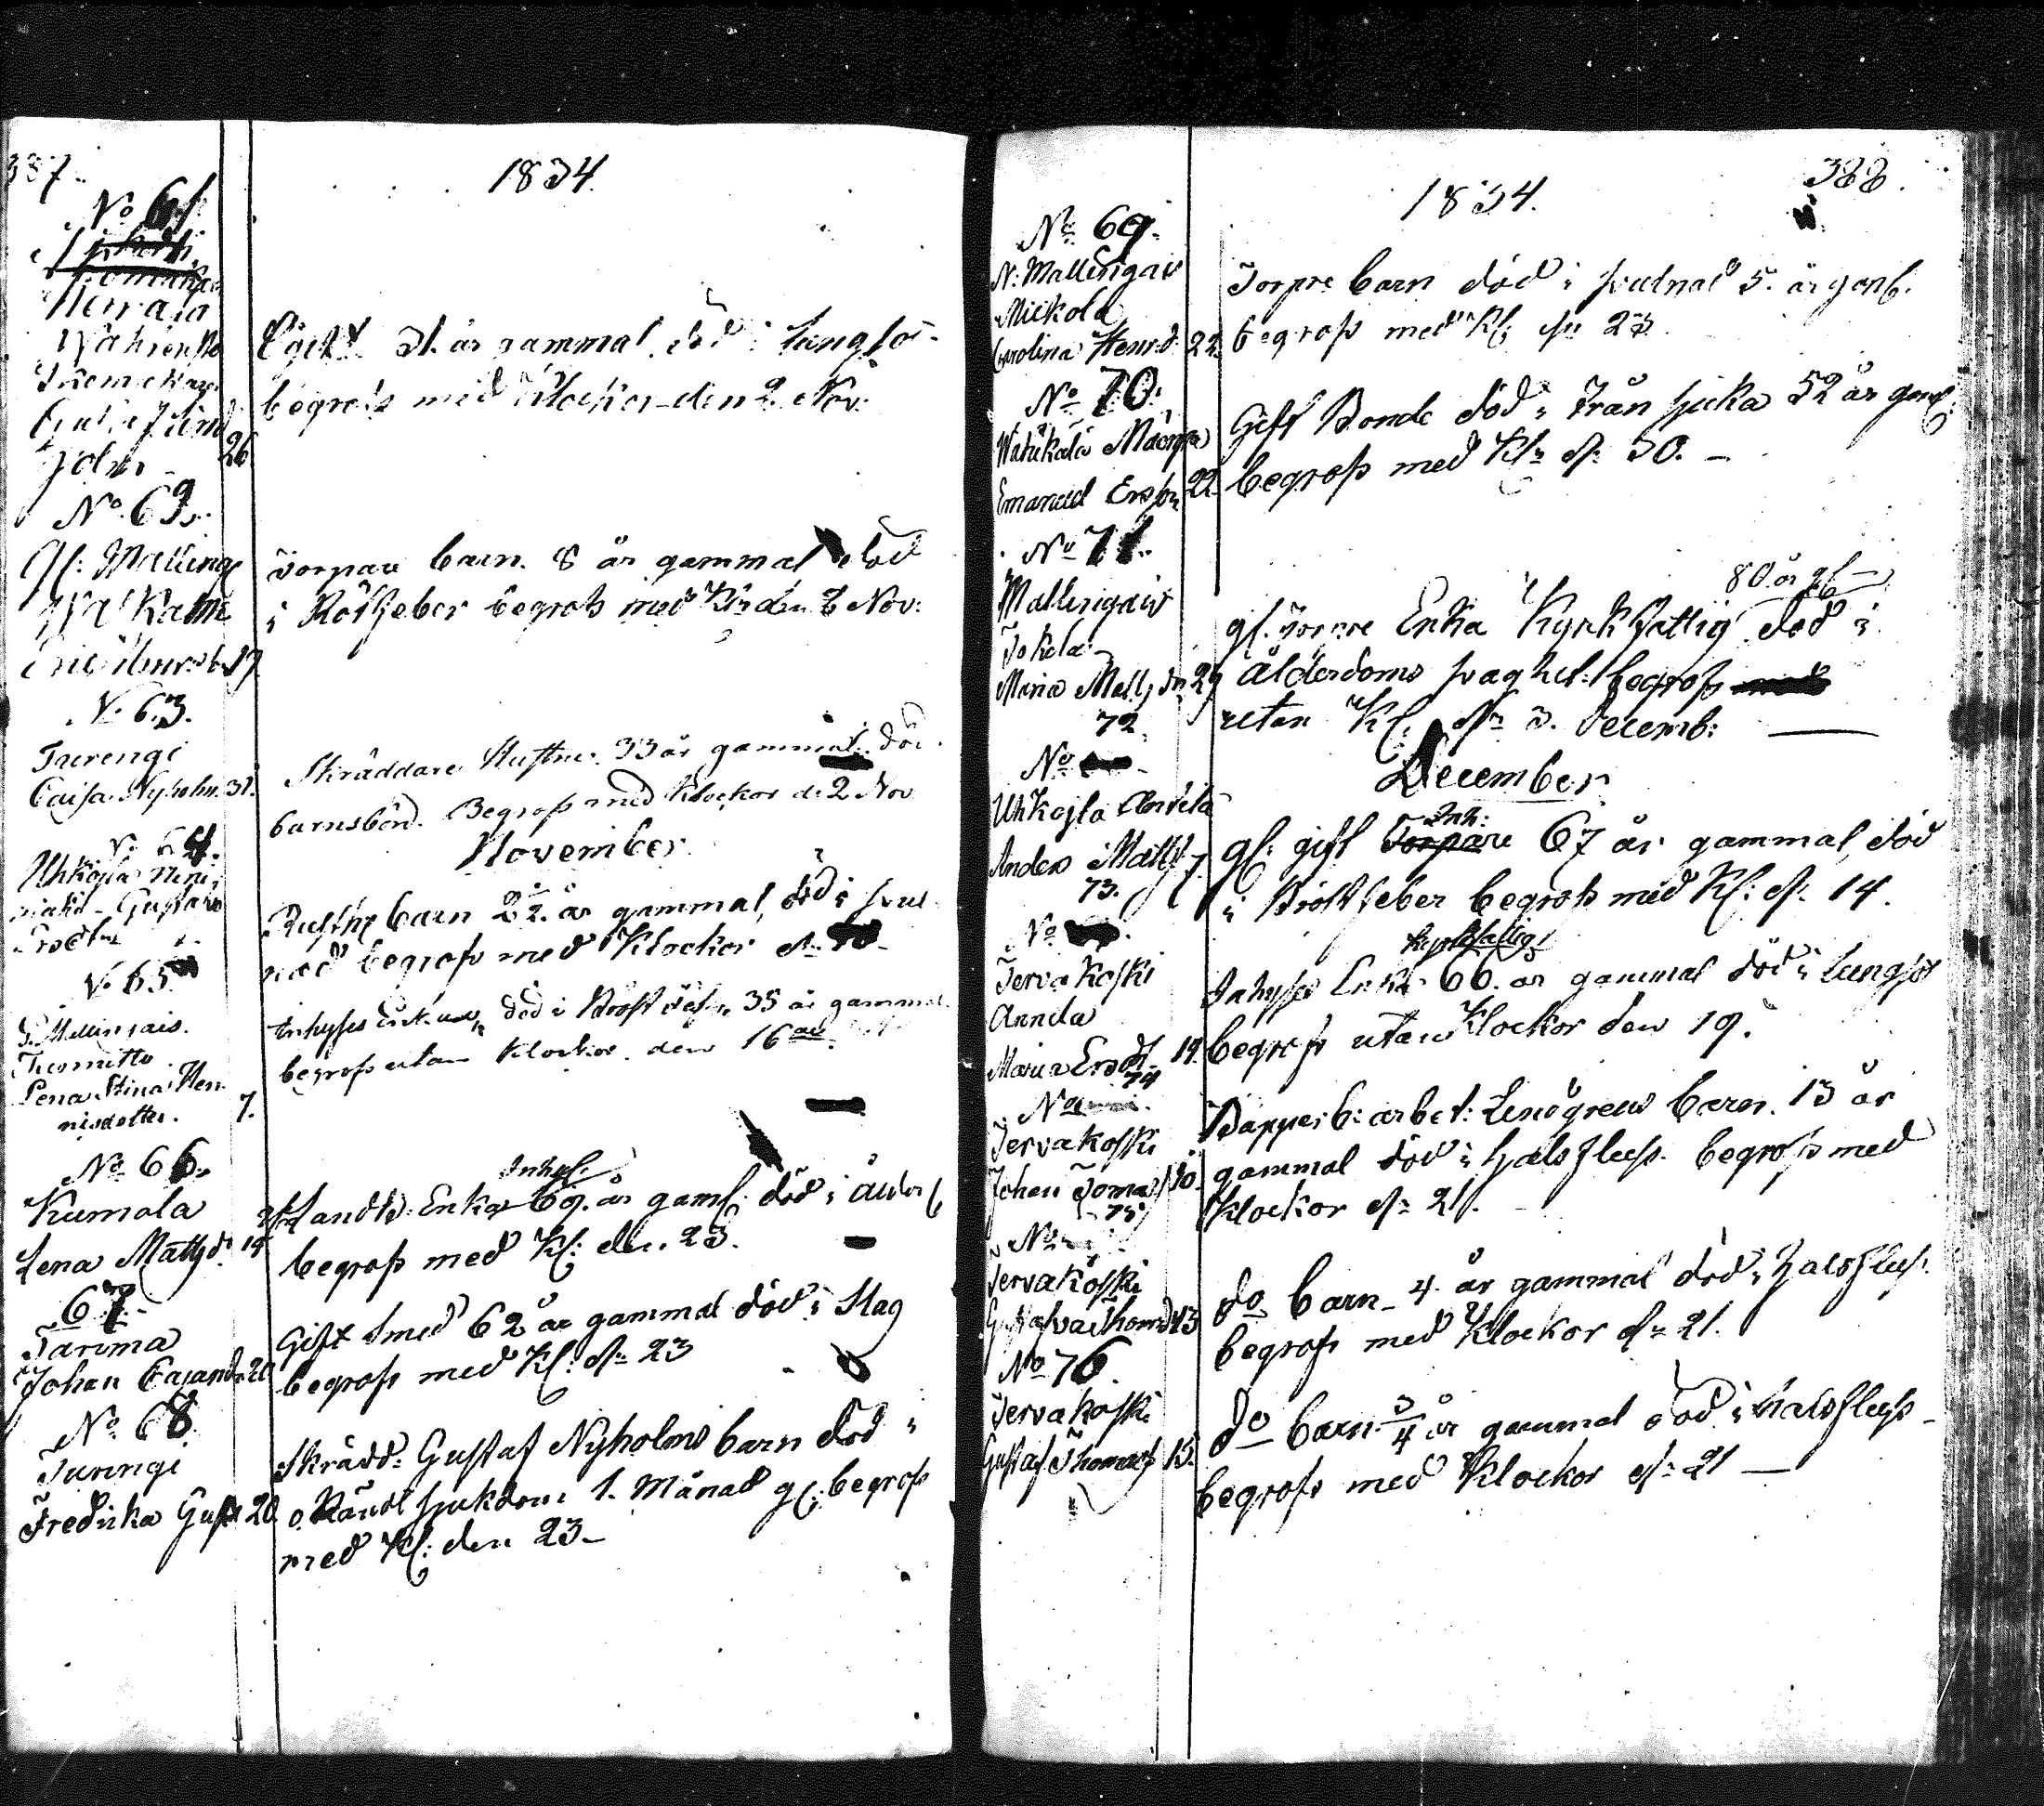 387.
1834.
No 61
Herraja
Wahren
Gustaf
John 26
Ogift 31. år gammal, död i lungsot
begrofs med Klockor den 2. Nov:
No 62.
Gl: Mallinge
Eric Henr: 27
Torpare barn. 8 år gammal död
i Rötfeber begrofs med Kl: den 2 Nov:
No 63.
Turengi
Caisa Nyholm. 31.
Skräddare Hustru. 33 år gammal. död i
barnsbörd. Begrofs med Klockor d: 2 Nov
November
No 64.
Uhkoila
Gustava
barn 2½ år gammal, död i sval
nad begrofs med Klockor d:
No 65
Tuomitto
Lena Stina Hen
risdotter. 7.
Inhyses död i Bröst 35 år gammal
begrofs utan Klockor den 16
No 66.
Kumola
Lena Mattsd: 19
Inhys:
Enka 69. år gaml: död i ålder
begrofs med Kl: den 23.
67.
Tarima
Johan Cajand: 20
Gift Smed 62 år gammal död i Slag
begrofs med Kl: d: 23
No 68
Turengi
Fredrika Gust 20
Skrädd: Gustaf Nyholms barn död i
okänd sjukdom 1. Månad gl: begrofs
med Kl: den 23-
388.
1834.
No 69.
N: Mallingais
Mickola
Carolina Henr:d: 22.
Torpre barn död i svulnad 5. år gaml.
begrofs med Kl: d: 23
No 70.
Wahikala Mäenpä
Emanuel Ersson 22.
Gift Bonde död i Trånsjuka 52 år gaml:
begrofs med Kl: d: 30. -
No 71.
Mallingais
Jokela
Maria Matts dr 29
80 år gl-
gl. Torpre Enka Kyrkfattig död i
ålderdoms svaghet: begrofs
utan Kl: d: 3. Decemb:
December
72.
No
Uhkoila Anttila
Anders Matts 7.
Inh:
gl: gift Torpare 67 år gammal, död
i Bröstfeber begrofs med Kl: d: 14.
73.
No
Jervakoski
Annila
Maria Ersd: 19.
kyrkfattig
Inhyses Enka 66. år gammal död i lungsot
begrofs utan Klockor den 19.
74
No
Jervakoski
Johan Tomas 10.
Pappersb: arbet: Lindgrens barn. 13 år
gammal död i halsfluss. begrofs med
Klockor d: 21.
75
No
Jervakoski
Gustafva Thomsd 13
do barn - 4. år gammal död i halsfluss.
begrofs med Klockor d: 21.
No 76.
Jervakoski
Gustaf Thomass 15.
do barn ¾ år gammal död i halsfluss
begrofs med Klockor d: 21 -